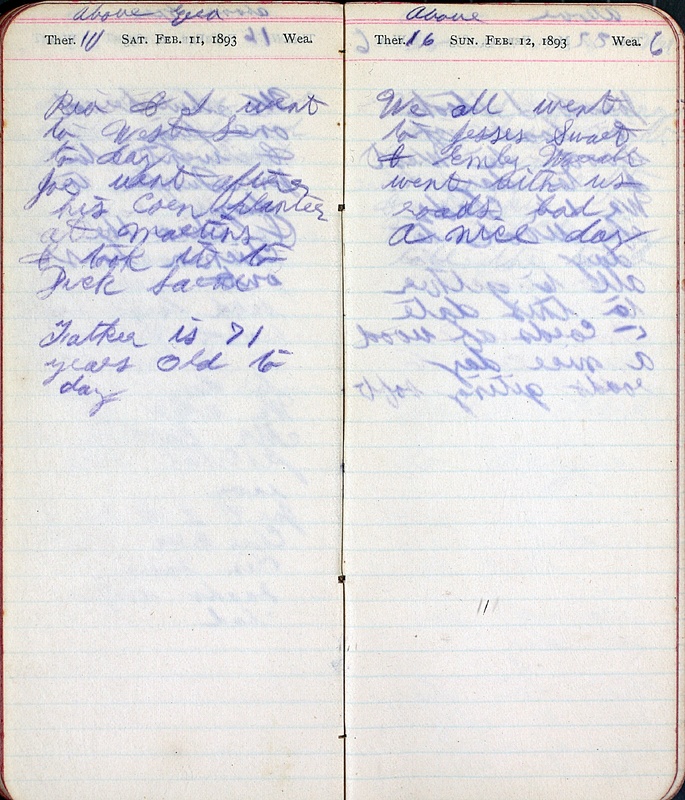 Above
Ther. 10 SAT. FEB. 11, 1893 Wea.
& I went
to West
to day
Joe went after
his Corn Planter
at Martins
& took it to
Dick
Father is 71
years old to
day
Above
Ther. 16 SUN. FEB. 12, 1893 Wea.
We all went
to Jesses Sweet
& Emily
went with us
roads bad
a nice day